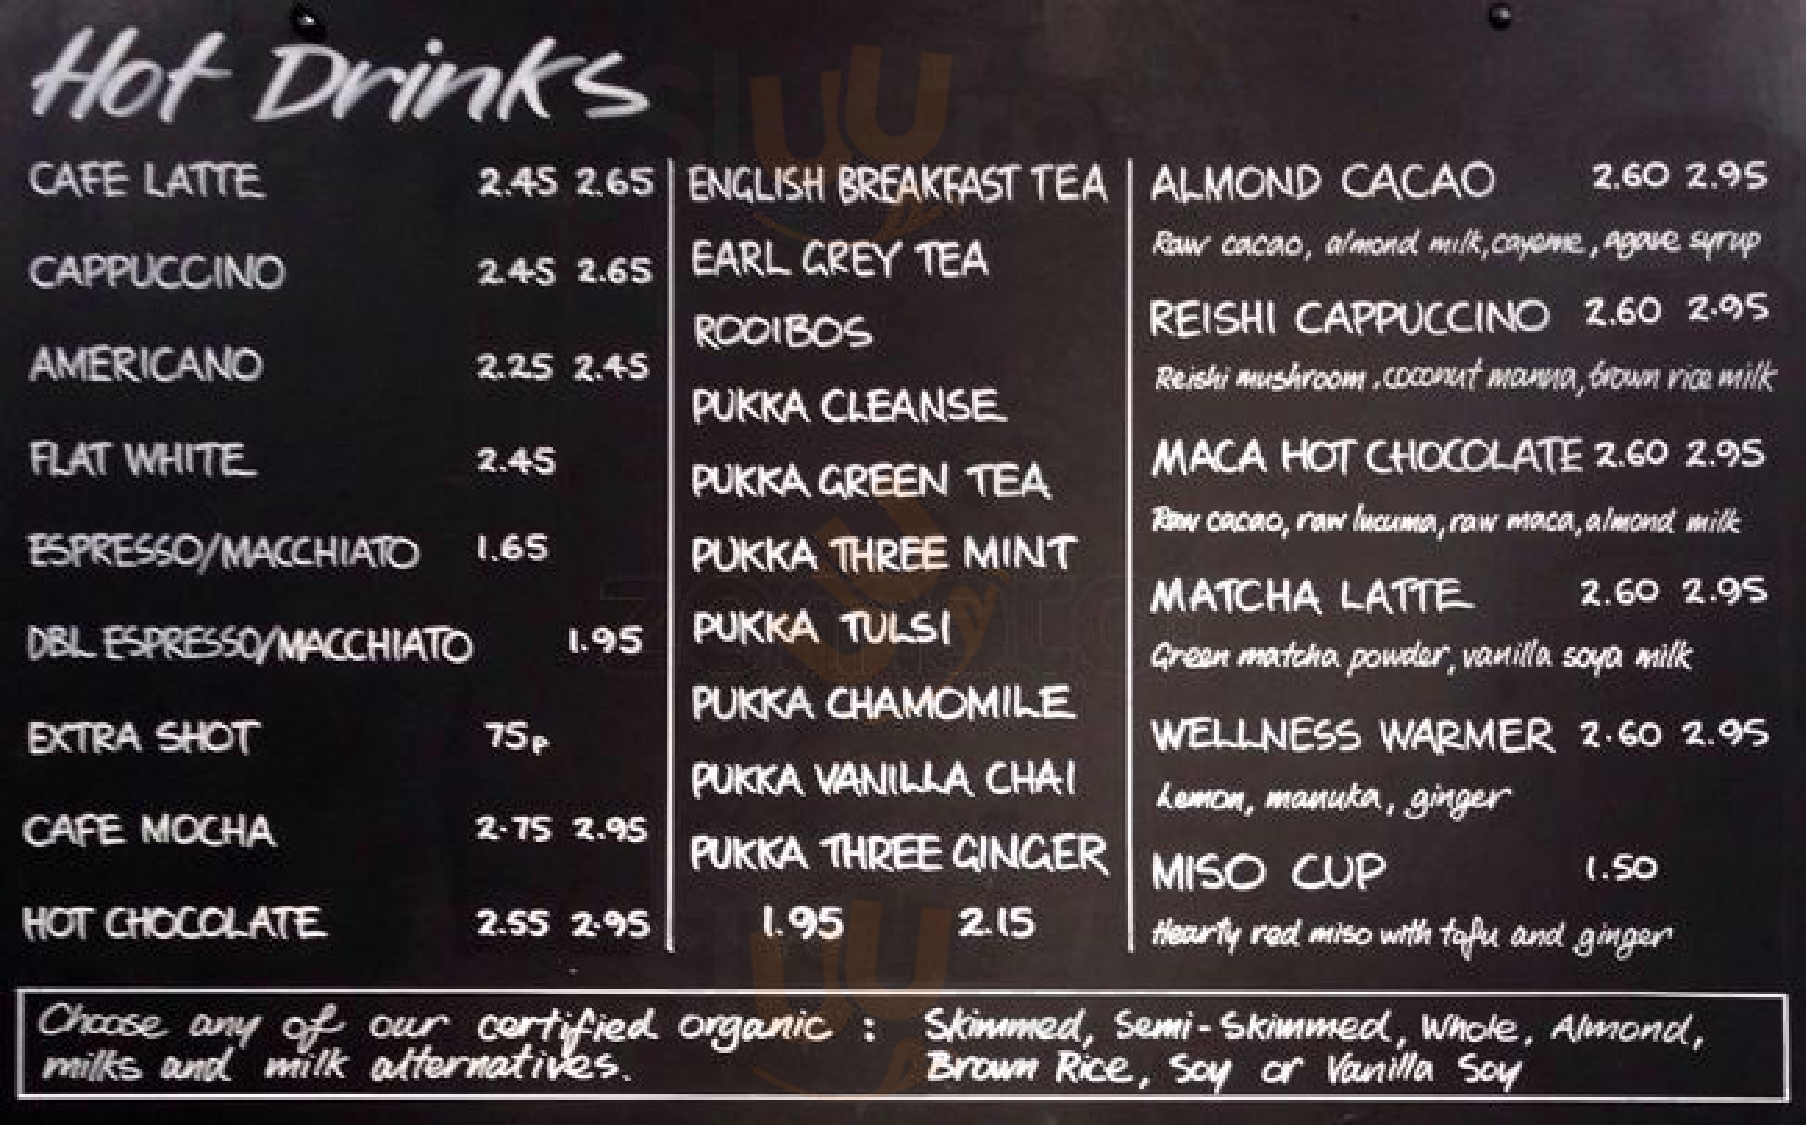 Hot Drinks
CAFE LATTE 2.45 2.65
CAPPUCCINO 2.45 2.65
AMERICANO 2.25 2.45
FLAT WHITE 2.45
ESPRESSO/MACCHIATO 1.65
DBL ESPRESSO/MACCHIATO 1.95
EXTRA SHOT 75p
CAFE MOCHA 2.75 2.95
HOT CHOCOLATE 2.55 2.95
ENGLISH BREAKFAST TEA
EARL GREY TEA
ROOIBOS
PUKKA CLEANSE
PUKKA GREEN TEA
PUKKA THREE MINT
PUKKA TULSI
PUKKA CHAMOMILE
PUKKA VANILLA CHAI
PUKKA THREE GINGER
1.95 2.15
ALMOND CACAO 2.60 2.95
Raw cacao, almond milk, cayenne, agave syrup
REISHI CAPPUCCINO 2.60 2.95
Reishi mushroom, coconut manna, brown rice milk
MACA HOT CHOCOLATE 2.60 2.95
Raw cacao, raw lucuma, raw maca, almond milk
MATCHA LATTE 2.60 2.95
Green matcha powder, vanilla soya milk
WELLNESS WARMER 2.60 2.95
Lemon, manuka, ginger
MISO CUP 1.50
Hearty red miso with tofu and ginger
Choose any of our certified organic : Skimmed, Semi-Skimmed, Whole, Almond,
milks and milk alternatives. Brown Rice, Soy or Vanilla Soy